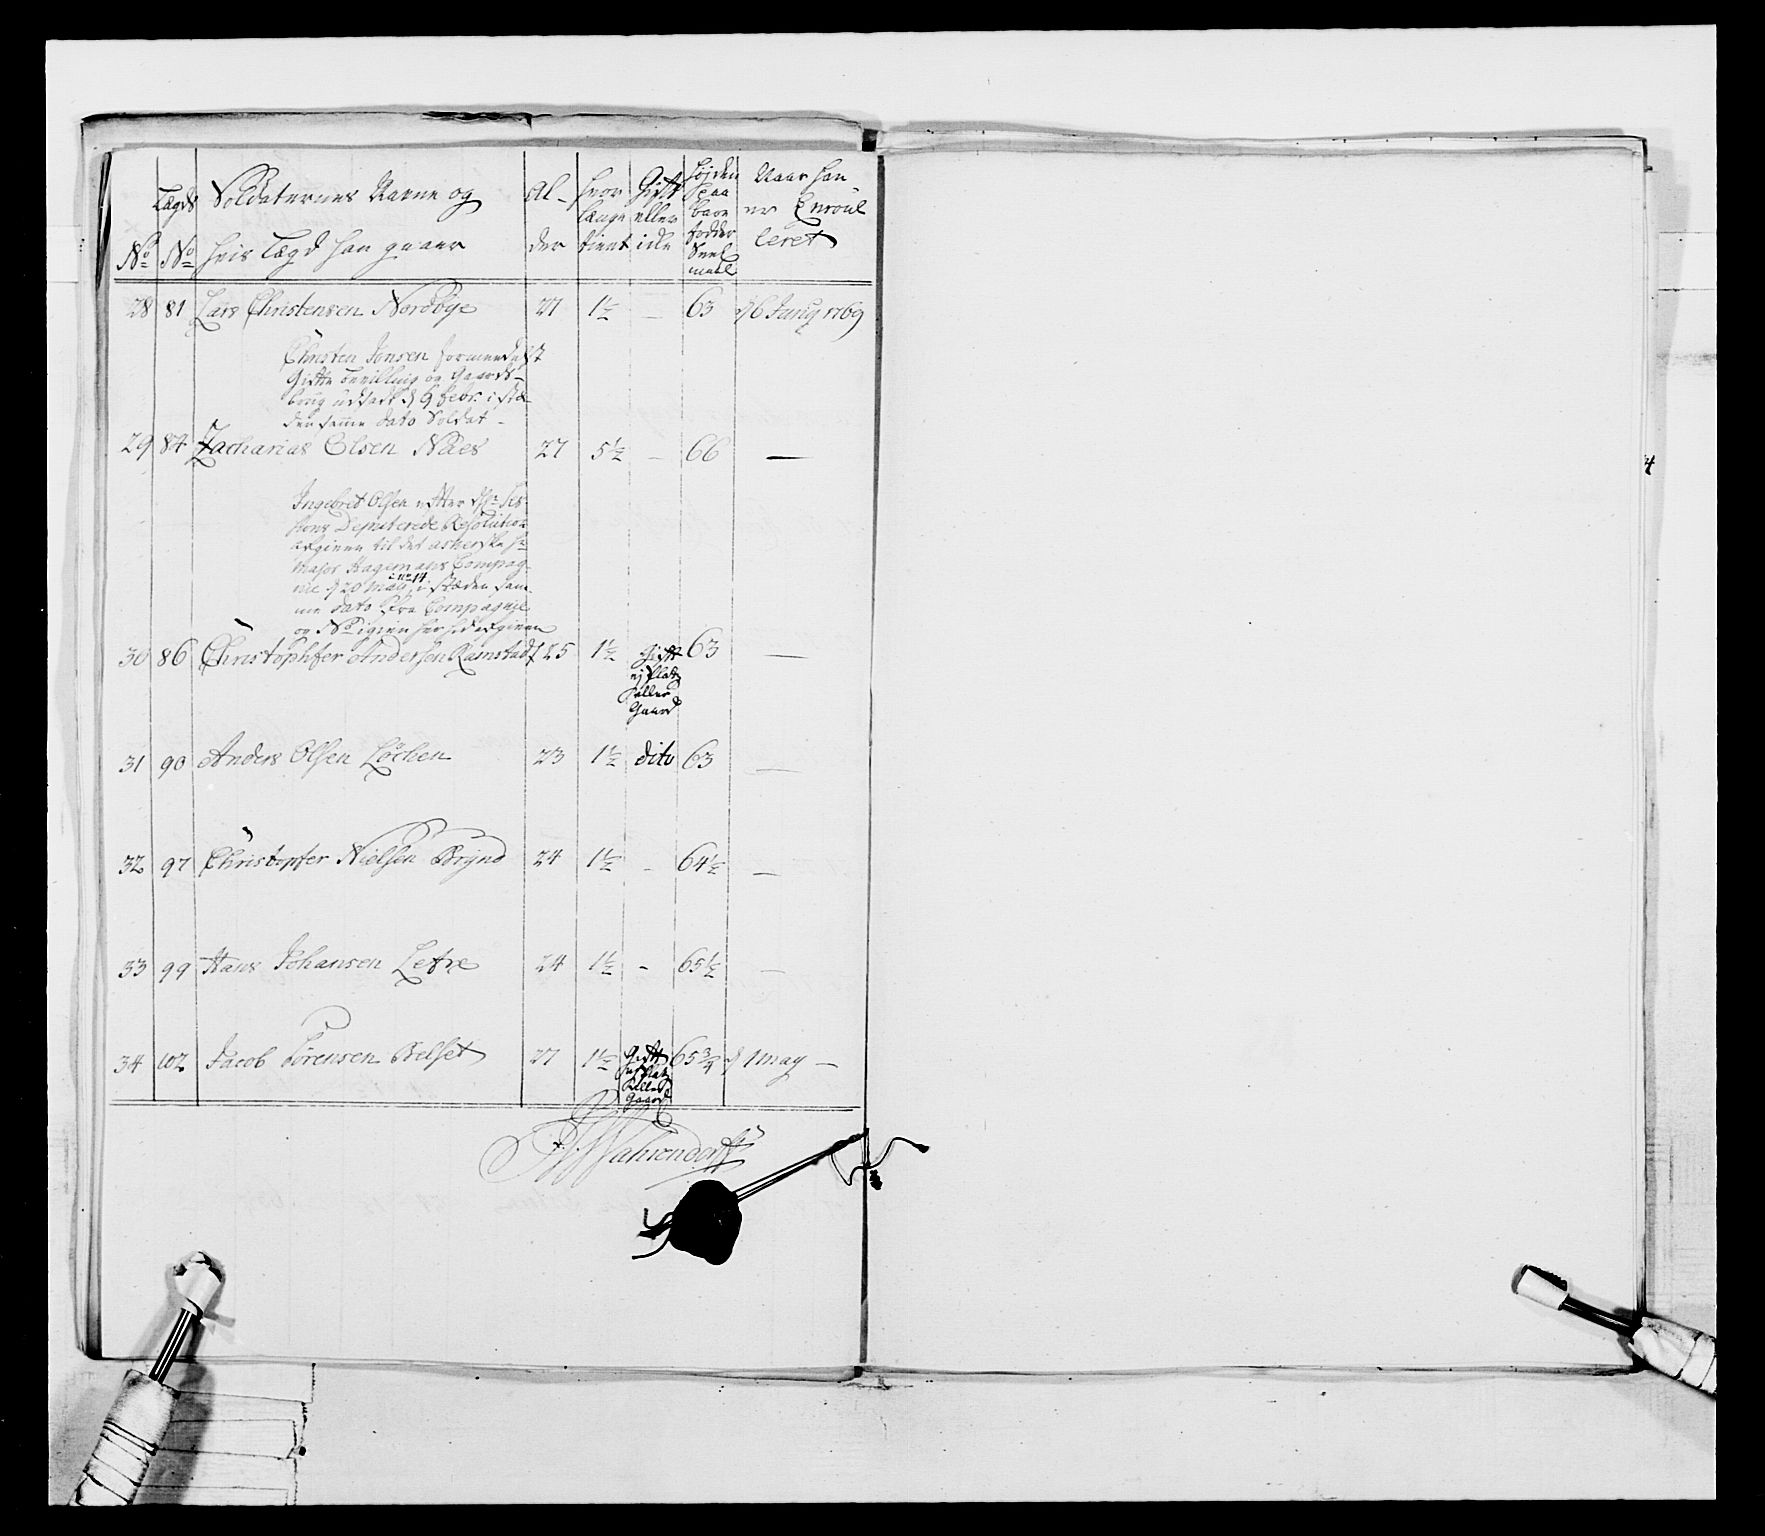 No Lægds No Soldaternes Nafne og hvis Lægd han staaer Al-der hvor længe tient Gift eller icke Højden paa bare fødder Naar han er Enroulleret
28 81 Lars Christensen Nordbye 27 1½ — 63 d 6 Juny 1769
Christen Jonsen formedelst
Gifte bevilling og Gaards-
brug udsadt d 9 febr. i stæ-
den samme dato Soldat
29 84 Zacharias Olsen Næes 27 5½ — 66 —
Ingebret Olsen efter Ses-
sions Deputerede Resolution
afgiven til det
Major Hagemans Compag-
nie d 20 May i stæden sam-
me dato fra Compagnie
og No igien her hid afgiven
30 86 Christophfer Andersen Ramstad 25 1½ Gift ej Plads heller Gaard 63 —
31 90 Anders Olsen Løchen 23 1½ dito 63 —
32 97 Christopfer Nielsen Brynd 24 1½ - 64½ —
33 99 Hans Johansen Letre 24 1½ - 65½ —
34 102 Jacob Sørensen Belset 27 1½ Gift ej Plads heller Gaard 65¾ d 1 may —